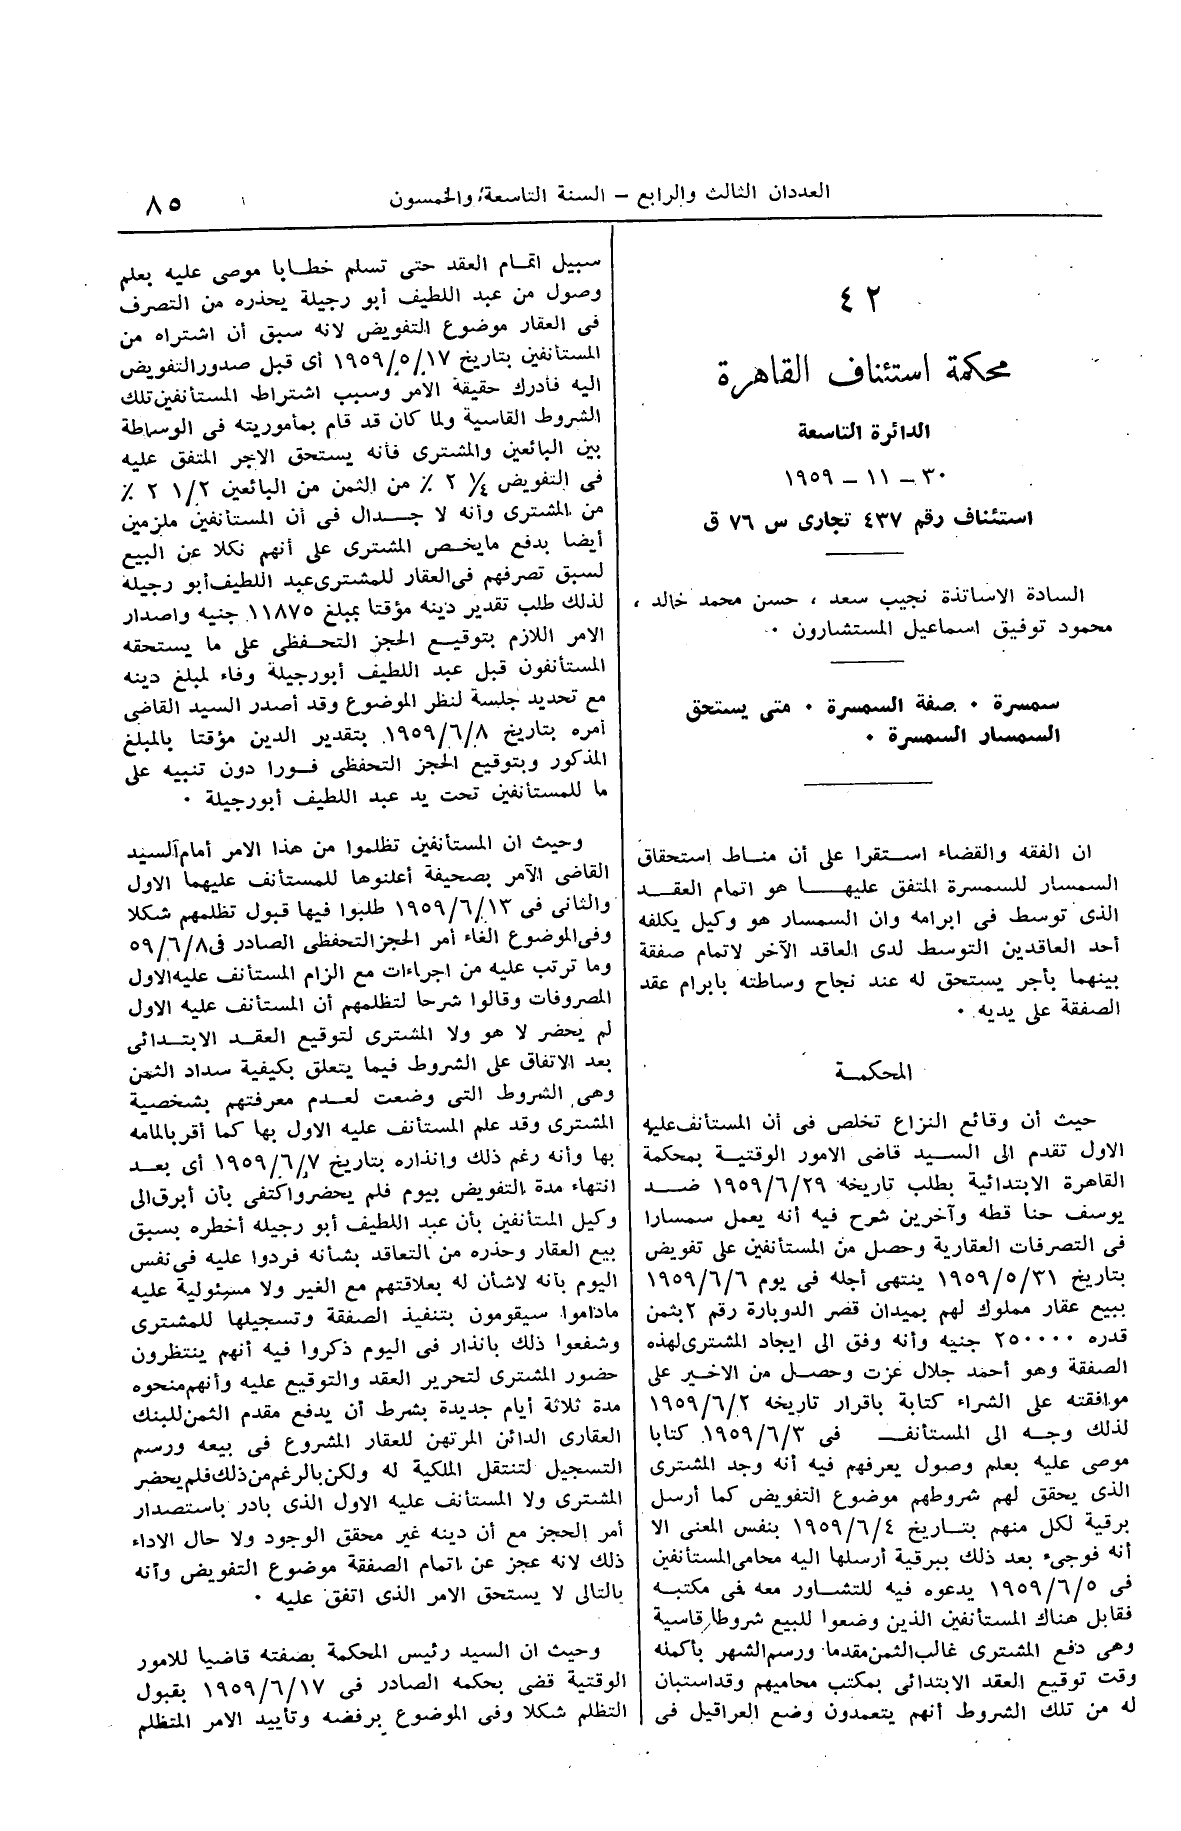 العددان الثالث والرابع – السنة التاسعة والخمسون
٨٥
٤٢
محكمة استئناف القاهرة
الدائرة التاسعة
٣٠ – ١١ – ١٩٥٩
استئناف رقم ٤٣٧ تجارى س ٧٦ ق
السادة الاساتذة نجيب سعد ، حسن محمد خالد ،
محمود توفيق اسماعيل المستشارون ٠
سمسرة ٠ صفة السمسرة ٠ متى يستحق
السمسار السمسرة ٠
ان الفقه والقضاء استقرا على أن مناط استحقاق
السمسار للسمسرة المتفق عليها هو اتمام العقد
الذى توسط فى ابرامه وان السمسار هو وكيل يكلفه
أحد العاقدين التوسط لدى العاقد الآخر لاتمام صفقة
بينهما بأجر يستحق له عند نجاح وساطته بابرام عقد
الصفقة على يديه ٠
المحكمة
حيث أن وقائع النزاع تخلص فى أن المستأنف عليه
الاول تقدم الى السيد قاضى الامور الوقتية بمحكمة
القاهرة الابتدائية بطلب تاريخه ١٩٥٩/٦/٢٩ ضد
يوسف حنا قطه وآخرين شرح فيه أنه يعمل سمسارا
فى التصرفات العقارية وحصل من المستأنفين على تفويض
بتاريخ ١٩٥٩/٥/٣١ ينتهى أجله فى يوم ١٩٥٩/٦/٦
ببيع عقار مملوك لهم بميدان قصر الدوبارة رقم ٢ بثمن
قدره ٢٥٠٠٠٠ جنيه وأنه وفق الى ايجاد المشترى لهذه
الصفقة وهو أحمد جلال عزت وحصل من الاخير على
موافقته على الشراء كتابة باقرار تاريخه ١٩٥٩/٦/٢
لذلك وجه الى المستأنف فى ١٩٥٩/٦/٣ كتابا
موصى عليه بعلم وصول يعرفهم فيه أنه وجد المشترى
الذى يحقق لهم شروطهم موضوع التفويض كما أرسل
برقية لكل منهم بتاريخ ١٩٥٩/٦/٤ بنفس المعنى الا
أنه فوجىء بعد ذلك ببرقية أرسلها اليه محامى المستأنفين
فى ١٩٥٩/٦/٥ يدعوه فيه للتشاور معه فى مكتبه
فقابل هناك المستأنفين الذين وضعوا للبيع شروطا قاسية
وهى دفع المشترى غالب الثمن مقدما ورسم الشهر بأكمله
وقت توقيع العقد الابتدائى بمكتب محاميهم وقد استبان
له من تلك الشروط أنهم يتعمدون وضع العراقيل فى
سبيل اتمام العقد حتى تسلم خطابا موصى عليه بعلم
وصول من عبد اللطيف أبو رجيلة يحذره من التصرف
فى العقار موضوع التفويض لانه سبق أن اشتراه من
المستأنفين بتاريخ ١٩٥٩/٥/١٧ أى قبل صدور التفويض
اليه فأدرك حقيقة الامر وسبب اشتراط المستأنفين تلك
الشروط القاسية ولما كان قد قام بمأموريته فى الوساطة
بين البائعين والمشترى فأنه يستحق الاجر المتفق عليه
فى التفويض ٢ ١/٤ ٪ من الثمن من البائعين ٢ ١/٢ ٪
من المشترى وأنه لا جدال فى أن المستأنفين ملزمين
أيضا بدفع مايخص المشترى على أنهم نكلا عن البيع
لسبق تصرفهم فى العقار للمشترى عبد اللطيف أبو رجيلة
لذلك طلب تقدير دينه مؤقتا بمبلغ ١١٨٧٥ جنيه واصدار
الامر اللازم بتوقيع الحجز التحفظى على ما يستحقه
المستأنفون قبل عبد اللطيف أبو رجيلة وفاء لمبلغ دينه
مع تحديد جلسة لنظر الموضوع وقد أصدر السيد القاضى
أمره بتاريخ ١٩٥٩/٦/٨ بتقدير الدين مؤقتا بالمبلغ
المذكور وبتوقيع الحجز التحفظى فورا دون تنبيه على
ما للمستأنفين تحت يد عبد اللطيف أبورجيلة ٠
وحيث ان المستأنفين تظلموا من هذا الامر أمام السيد
القاضى الآمر بصحيفة أعلنوها للمستأنف عليهما الاول
والثانى فى ١٩٥٩/٦/١٣ طلبوا فيها قبول تظلمهم شكلا
وفى الموضوع الغاء أمر الحجز التحفظى الصادر فى ٥٩/٦/٨
وما ترتب عليه من اجراءات مع الزام المستأنف عليه الاول
المصروفات وقالوا شرحا لتظلمهم أن المستأنف عليه الاول
لم يحضر لا هو ولا المشترى لتوقيع العقد الابتدائى
بعد الاتفاق على الشروط فيما يتعلق بكيفية سداد الثمن
وهى الشروط التى وضعت لعدم معرفتهم بشخصية
المشترى وقد علم المستأنف عليه الاول بها كما أقر بالمامه
بها وأنه رغم ذلك وانذاره بتاريخ ١٩٥٩/٦/٧ أى بعد
انتهاء مدة التفويض بيوم فلم يحضر واكتفى بأن أبرق الى
وكيل المتأنفين بأن عبد اللطيف أبو رجيله أخطره بسبق
بيع العقار وحذره من التعاقد بشأنه فردوا عليه فى نفس
اليوم بأنه لاشأن له بعلاقتهم مع الغير ولا مسئولية عليه
ماداموا سيقومون بتنفيذ الصفقة وتسجيلها للمشترى
وشفعوا ذلك بانذار فى اليوم ذكروا فيه أنهم ينتظرون
حضور المشترى لتحرير العقد والتوقيع عليه وأنهم منحوه
مدة ثلاثة أيام جديدة بشرط أن يدفع مقدم الثمن للبنك
العقارى الدائن المرتهن للعقار المشروع فى بيعه ورسم
التسجيل لتنتقل الملكية له ولكن بالرغم من ذلك فلم يحضر
المشترى ولا المستأنف عليه الاول الذى بادر باستصدار
أمر الحجز مع أن دينه غير محقق الوجود ولا حال الاداء
ذلك لانه عجز عن اتمام الصفقة موضوع التفويض وأنه
بالتالى لا يستحق الامر الذى اتفق عليه ٠
وحيث ان السيد رئيس المحكمة بصفته قاضيا للامور
الوقتية قضى بحكمه الصادر فى ١٩٥٩/٦/١٧ بقبول
التظلم شكلا وفى الموضوع برفضه وتأييد الامر المتظلم